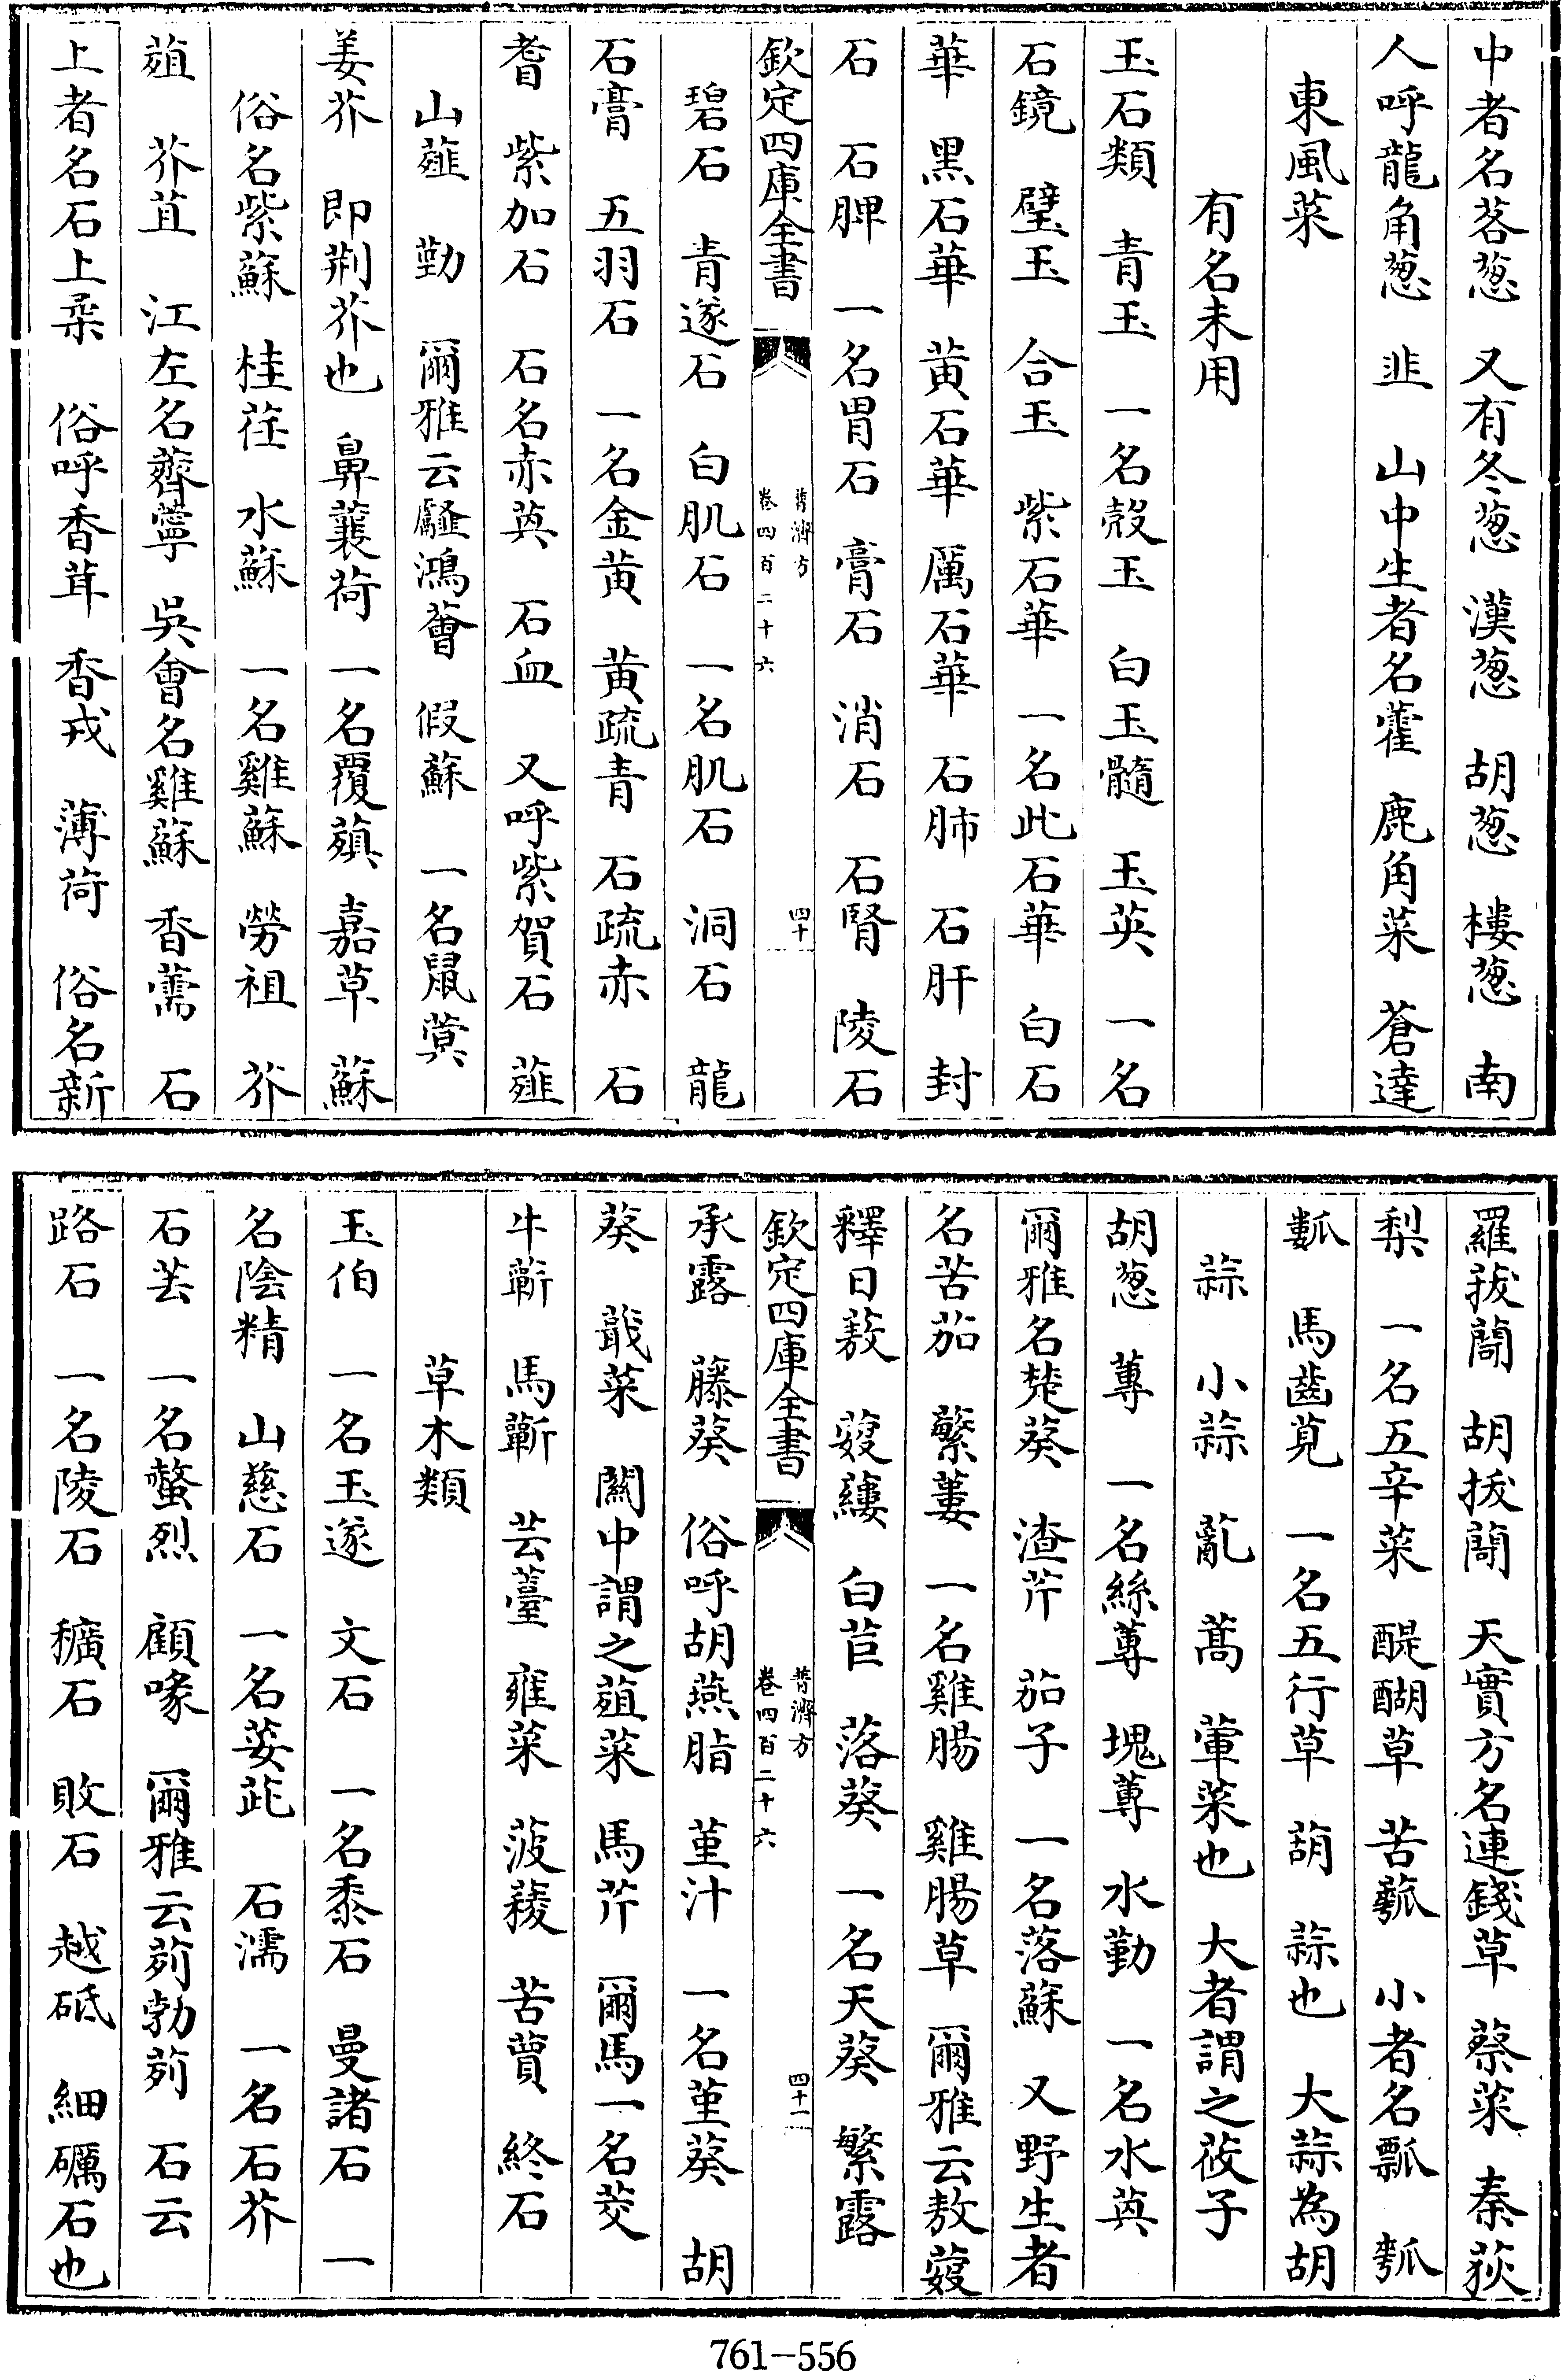 中者名茖葱　又有冬葱　漢葱　胡葱　樓葱　南
人呼龍角葱　韭　山中生者名藿　鹿角菜　蒼達
東風菜
有名未用
玉石類　青玉　一名殼玉　白玉髓　玉英　一名
石鏡　璧玉　合玉　紫石華　一名此石華　白石
華　黑石華　黃石華　厲石華　石肺　石肝　封
石　石脾　一名胃石　膏石　消石　石腎　陵石
欽定四庫全書　普濟方　卷四百二十六　四十
碧石　青遂石　白肌石　一名肌石　洞石　龍
石膏　五羽石　一名金黄　黄疏青　石疏赤　石
耆　紫加石　石名赤英　石血　又呼紫賀石　薤
山薤　勤　爾雅云鼴鴻薈　假蘇　一名鼠蓂
姜芥　即荆芥也　鼻蘘荷　一名覆蒩　嘉草　蘇
俗名紫蘇　桂荏　水蘇　一名雞蘇　勞祖　芥
蒩　芥苴　江左名薺薴　吳會名雞蘇　香薷　石
上者名石上柔　俗呼香茸　香戎　薄荷　俗名新
羅菝䕞　胡菝䕞　天寶方名連錢草　蔡菜　秦荻
梨　一名五辛菜　醍醐草　苦瓠　小者名瓢　瓠
瓢　馬齒莧　一名五行草　葫　蒜也　大蒜為胡
蒜　小蒜　亂　蒿　葷菜也　大者謂之莜子
胡葱　蓴　一名絲蓴　塊蓴　水勤　一名水英
爾雅名楚葵　渣芹　茄子　一名落蘇　又野生者
名苦茄　蘩蔞　一名雞腸　雞腸草　爾雅云䓤䕅
釋曰䓤　䕅縷　白苣　落葵　一名天葵　繁露
欽定四庫全書　普濟方　卷四百二十六　四十一
承露　藤葵　俗呼胡燕脂　堇汁　一名堇葵　胡
葵　蕺菜　關中謂之菹菜　馬芹　爾馬一名茭
牛蘄　馬蘄　芸薹　雍菜　菠薐　苦蕒　終石
草木類
玉伯　一名玉遂　文石　一名黍石　曼諸石　一
名陰精　山慈石　一名𦵏茈　石濡　一名石芥
石芸　一名螫烈　顧喙　爾雅云茢勃茢　石云
路石　一名陵石　穬石　敗石　越砥　細礪石也
761-556